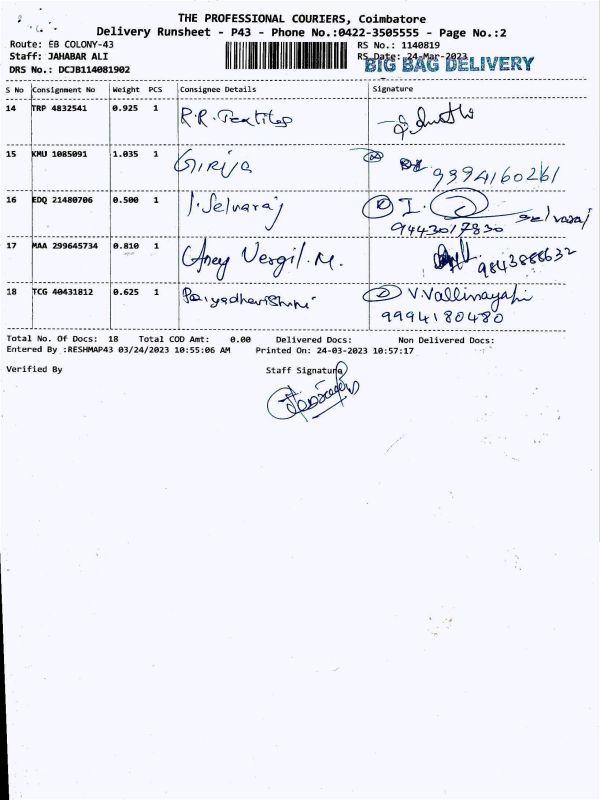 THE PROFESSIONAL COURIERS, Coimbatore
Delivery Runsheet - P43 - Phone No.:0422-3505555 - Page No.:2
Route: EB COLONY-43 RS No.: 1140819
Staff: JAHABAR ALI RS Date: 24-Mar-2023
BIG BAG DELIVERY
DRS No.: DCJB114081902
S No Consignment No Weight PCS Consignee Details Signature
14 TRP 4832541 0.925 1 R.R. Textiles
15 KMU 1085091 1.035 1 Girija 9994160261
16 EDQ 21480706 0.500 1 I. Selvaraj I. Selvaraj
9443017830
17 MAA 299645734 0.810 1 Vergil. M. 9843888632
18 TCG 40431812 0.625 1 Priyadharishini V. Vallinayahi
9994180480
Total No. Of Docs: 18 Total COD Amt: 0.00 Delivered Docs: Non Delivered Docs:
Entered By :RESHMAP43 03/24/2023 10:55:06 AM Printed On: 24-03-2023 10:57:17
Verified By Staff Signature